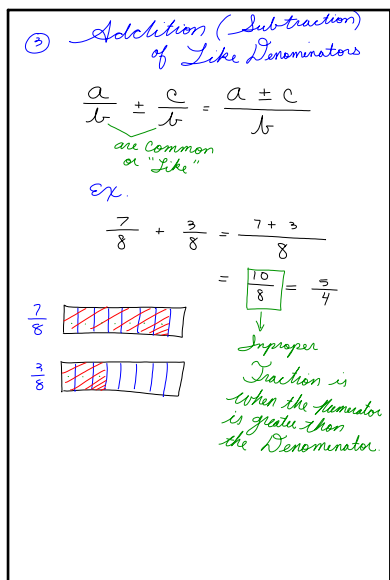 ③ Addition (Subtraction)
of Like Denominators
a/b ± c/b = a ± c/b
are common
or "Like"
Ex.
7/8 + 3/8 = 7 + 3/8
= 10/8 = 5/4
7/8
3/8
Inproper
Fraction is
when the numerator
is greater than
the Denominator.